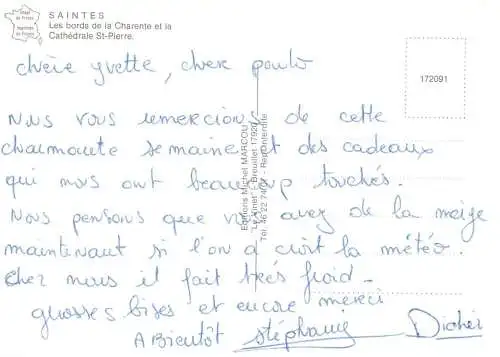 SAINTES
Les bords de la Charente et la
Cathédrale St-Pierre.
172091
chère yvette, chere
Nous vous remercions de cette
charmante semaine et des cadeaux
qui nous ont beaucoup touchés.
Nous pensons que vous avez de la neige
maintenant si l'on a croit la météo.
chez nous il fait très froid -
grosses bises et encore merci
A Bientôt stéphanie Didier
Editions Michel MARCOU
"Le Pinet" - Breuillet 17920
Tél. 46 22 74 07 - Rep. interdite